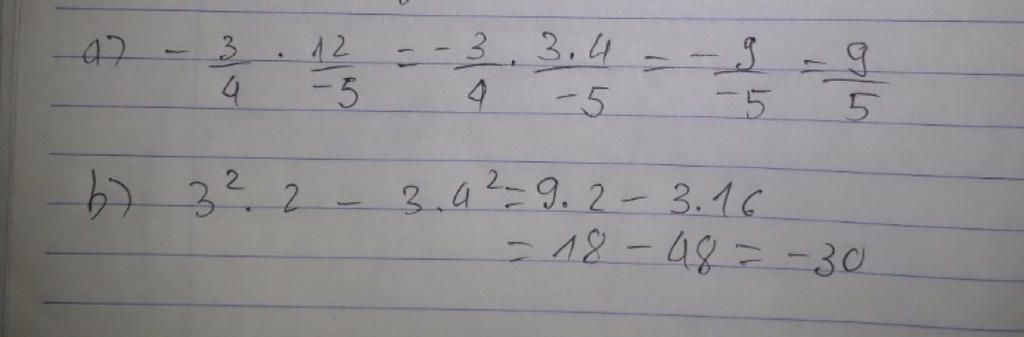 a) - 3/4 . 12/-5 = - 3/4 . 3.4/-5 = - 9/-5 = 9/5
b) 3² . 2 - 3.4² = 9.2 - 3.16
= 18 - 48 = -30